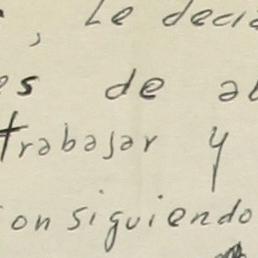 , Le decía
es de al
trabajar y
onsiguiendo